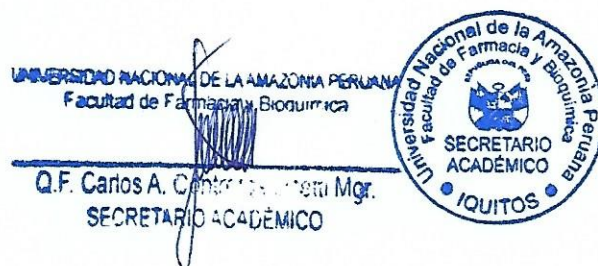 UNIVERSIDAD NACIONAL DE LA AMAZONIA PERUANA
Facultad de Farmacia y Bioquimica
Q.F. Carlos A. Mgr.
SECRETARIO ACADÉMICO
Universidad Nacional de la Amazonia Peruana
Facultad de Farmacia y Bioquimica
REPUBLICA DEL PERU
SECRETARIO
ACADÉMICO
IQUITOS